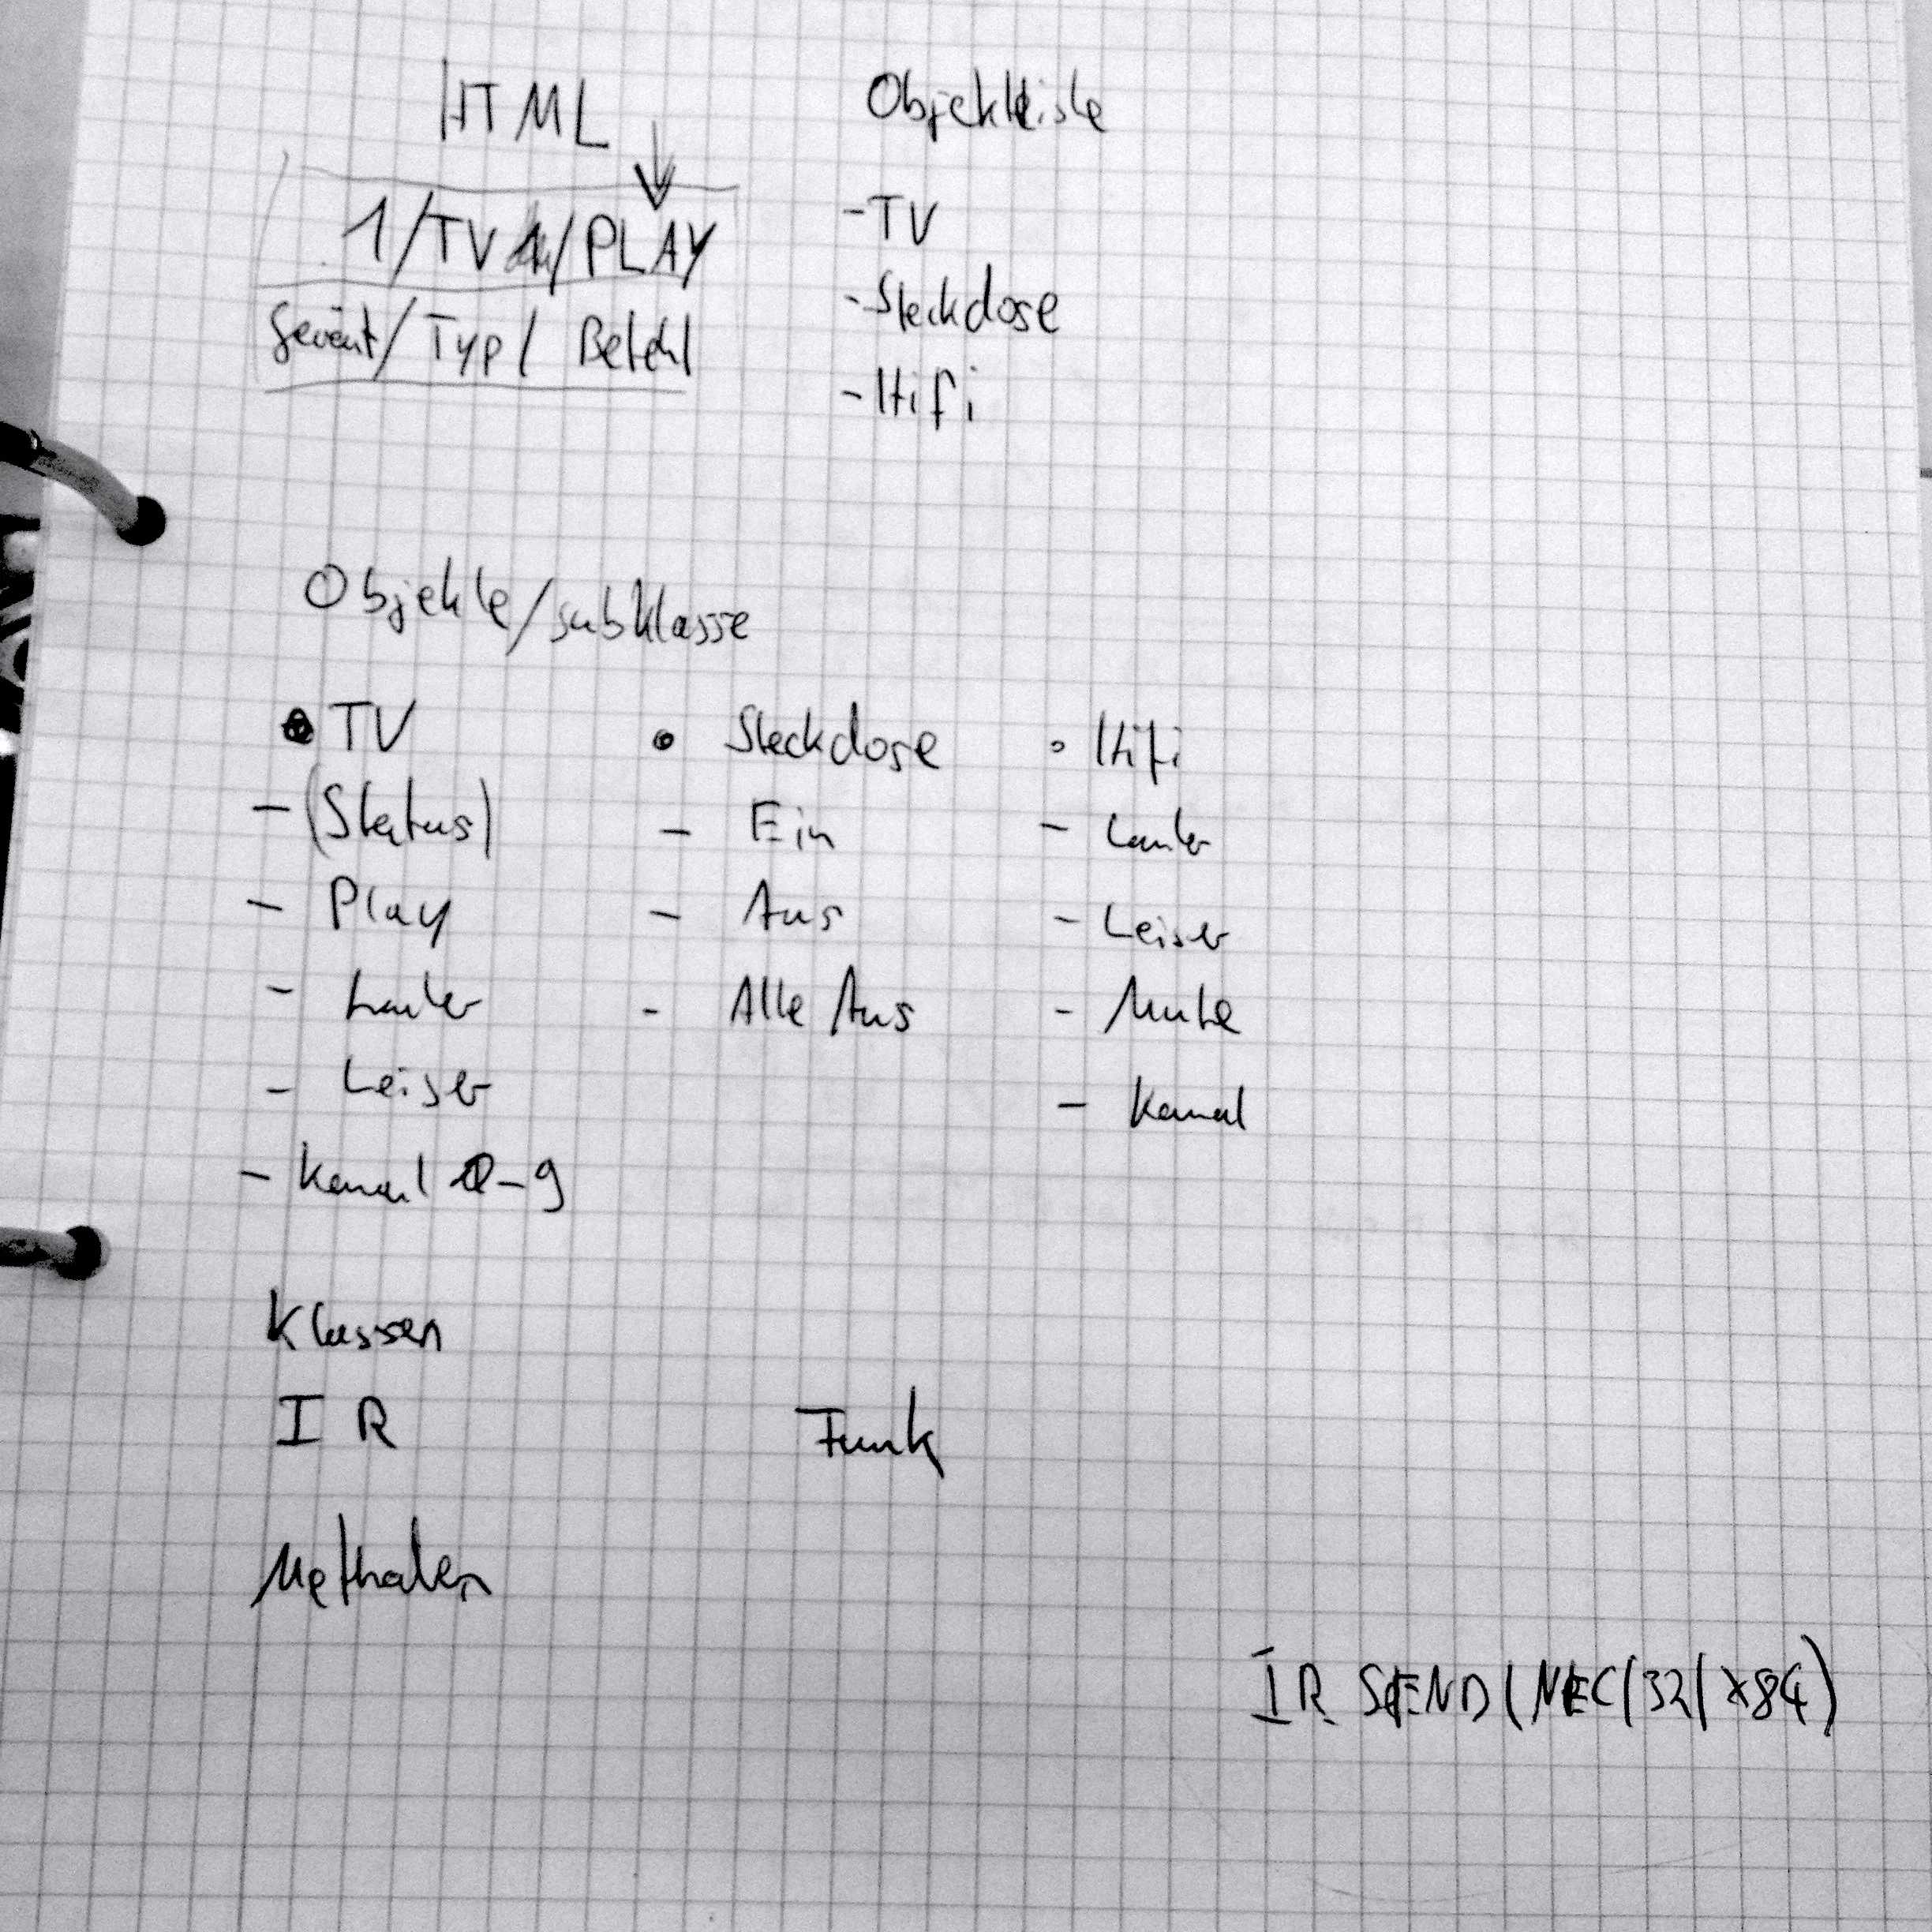 HTML
1/TV /PLAY
Gerät/Typ/ Befehl
Objektliste
-TV
-Steckdose
-Hifi
Objekte/subklasse
• TV
- (Status)
- Play
- Lauter
- Leiser
- Kanal 0-9
• Steckdose
- Ein
- Aus
- Alle Aus
• Hifi
- Lauter
- Leiser
- Mute
- Kanal
Klassen
IR
Funk
Methoden
IR SEND(NEC/32/x84)